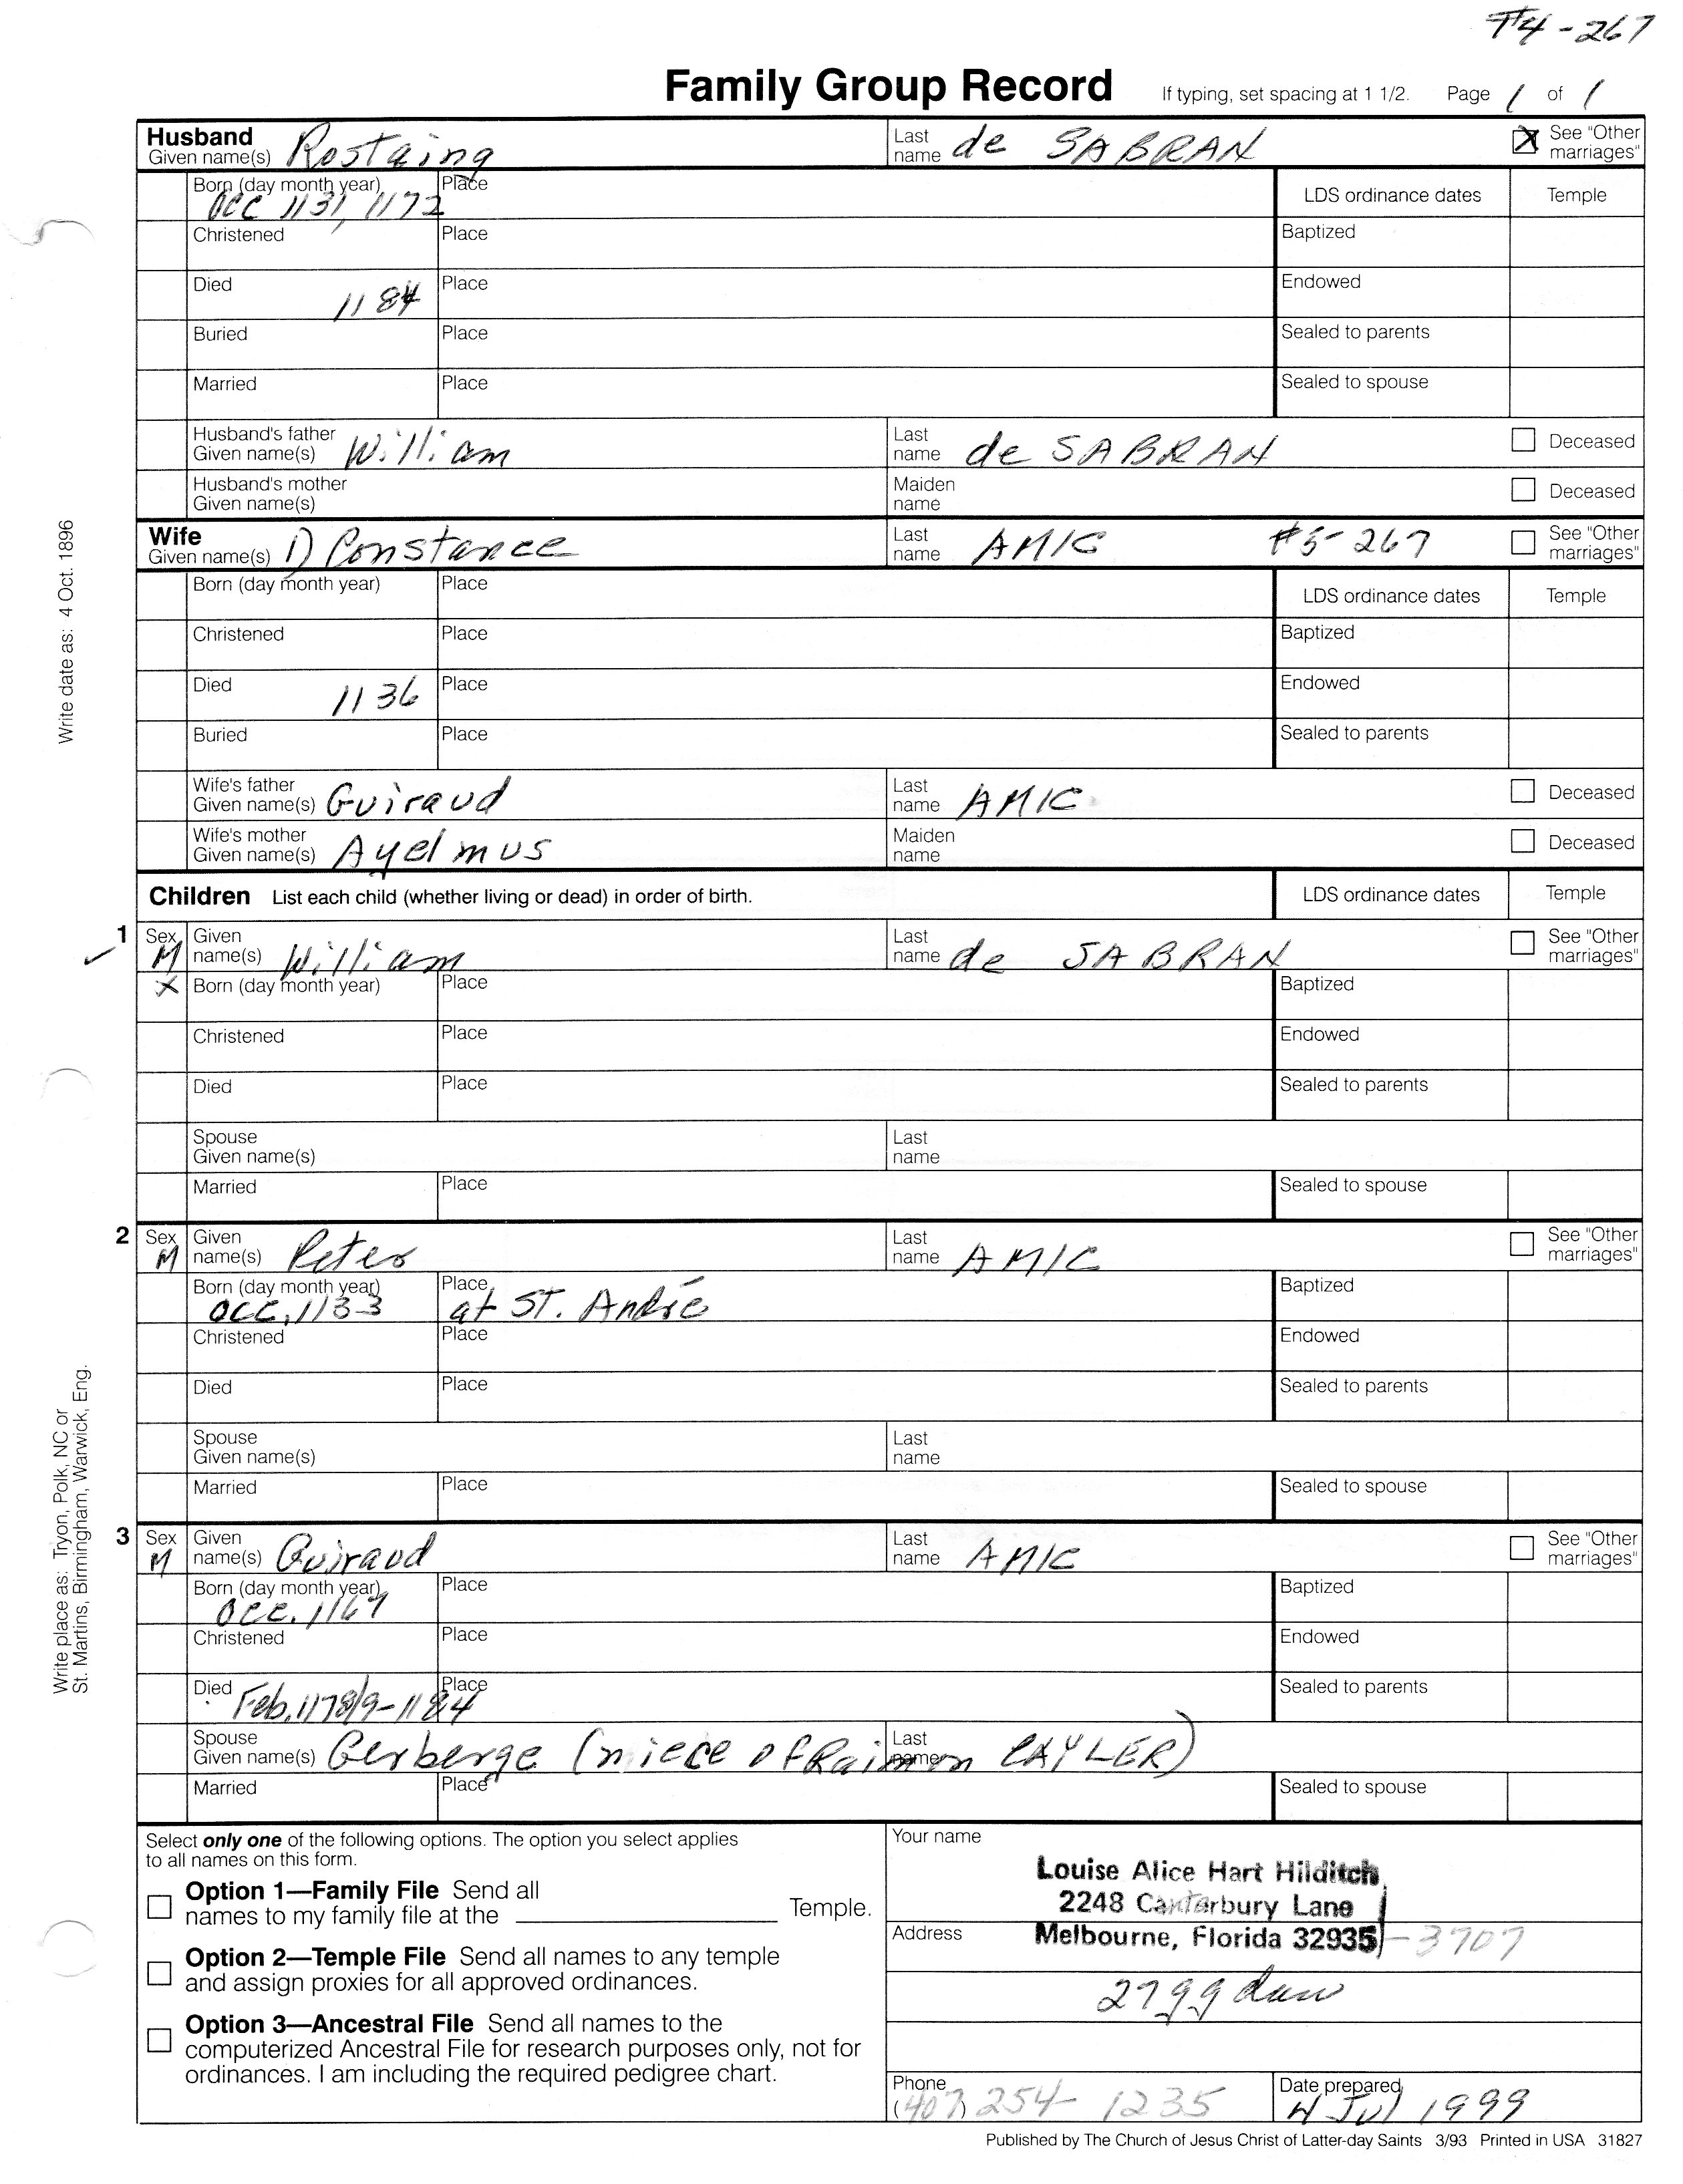 #4-267
Family Group Record If typing, set spacing at 1 1/2. Page 1 of 1
Husband
Given name(s) Rostaing Last name de SABRAN See "Other marriages"
Born (day month year) occ 1131, 1172 Place LDS ordinance dates Temple
Christened Place Baptized
Died 1184 Place Endowed
Buried Place Sealed to parents
Married Place Sealed to spouse
Husband's father Given name(s) William Last name de SABRAN Deceased
Husband's mother Given name(s) Maiden name Deceased
Wife
Given name(s) 1) Constance Last name AMIC #5-267 See "Other marriages"
Born (day month year) Place LDS ordinance dates Temple
Christened Place Baptized
Died 1136 Place Endowed
Buried Place Sealed to parents
Wife's father Given name(s) Guiraud Last name AMIC Deceased
Wife's mother Given name(s) Ayelmus Maiden name Deceased
Children List each child (whether living or dead) in order of birth. LDS ordinance dates Temple
1 Sex M Given name(s) William Last name de SABRAN See "Other marriages"
X Born (day month year) Place Baptized
Christened Place Endowed
Died Place Sealed to parents
Spouse Given name(s) Last name
Married Place Sealed to spouse
2 Sex M Given name(s) Peter Last name AMIC See "Other marriages"
Born (day month year) occ. 1133 Place at ST. André Baptized
Christened Place Endowed
Died Place Sealed to parents
Spouse Given name(s) Last name
Married Place Sealed to spouse
3 Sex M Given name(s) Guiraud Last name AMIC See "Other marriages"
Born (day month year) occ. 1167 Place Baptized
Christened Place Endowed
Died Feb. 1178/9-1184 Place Sealed to parents
Spouse Given name(s) Gerberge (niece of Raimon CAYLER) Last name
Married Place Sealed to spouse
Write date as: 4 Oct. 1896
Write place as: Tryon, Polk, NC or
St. Martins, Birmingham, Warwick, Eng.
Select only one of the following options. The option you select applies
to all names on this form.
Option 1—Family File Send all
names to my family file at the Temple.
Option 2—Temple File Send all names to any temple
and assign proxies for all approved ordinances.
Option 3—Ancestral File Send all names to the
computerized Ancestral File for research purposes only, not for
ordinances. I am including the required pedigree chart.
Your name
Louise Alice Hart Hilditch
2248 Canterbury Lane
Address Melbourne, Florida 32935-3707
Phone (407) 254-1235 Date prepared 4 Jul 1999
Published by The Church of Jesus Christ of Latter-day Saints 3/93 Printed in USA 31827